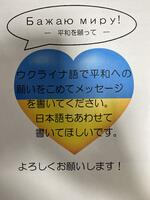 Бажаю миру!
― 平和を願って ―
ウクライナ語で平和への
願いをこめてメッセージ
を書いてください。
日本語もあわせて
書いてほしいです。
よろしくお願いします！